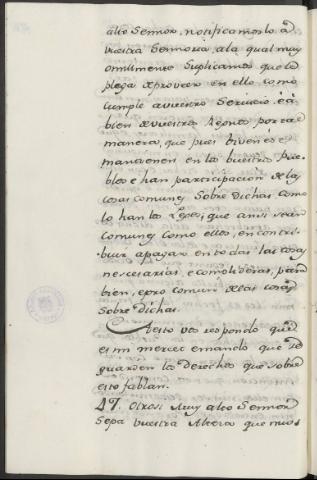 alto Sennor, notificamoslo á
vuestra Sennoria, a la qual muy
omilmente Suplicamos que le
plega de proveer en ello como
cumple a vuestro Servicio, é á
bien de vuestros Regnos por tal
manera, que pues biven, é se
mantienen en los vuestros Pue-
blos e han participacion de las
cosas comunes Sobre dichas como
lo han los Legos; que ansi sean
comunes como ellos, en contri-
buir, a pagar en todas las cosas
nescesarias, e complideras, para
bien, e pro comun de las cosas
Sobre dichas.
A esto vos respondo que
es mi merced e mando que se
guarden los derechos que sobre
esto fablan.
47. Otrosi Muy alto Sennor
Sepa vuestra Alteza que muchos